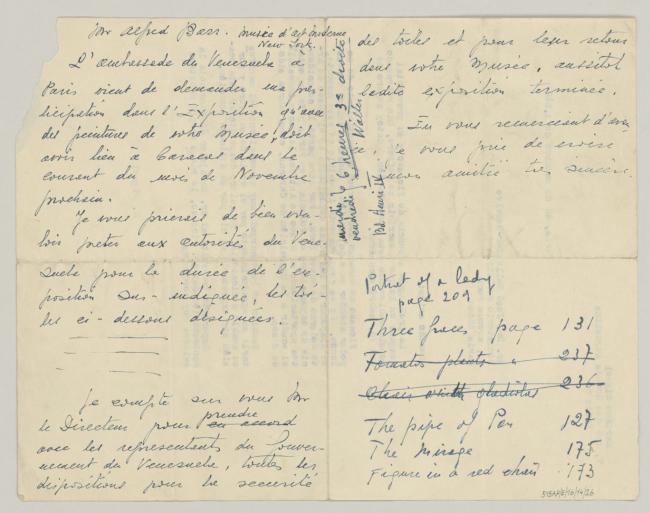 Mr Alfred Barr. Musée d'art moderne
New York.
L'ambassade du Venezuela à
Paris vient de demander ma par-
ticipation dans l'Exposition qu'avec
des peintures de votre Musée, doit
avoir lieu à Caracas dans le
courant du mois de Novembre
prochain.
Je vous prierais de bien vou-
loir preter aux autorités du Vene-
suela pour la durée de l'ex-
position sus-indiquée, les toi-
les ci-dessous désignées.
Je compte sur vous Mr
le Directeur pour prendre
en accord
avec les representants du Gouver-
nement du Venezuela, toutes les
dispositions pour la securité
des toiles et pour leur retour
dans votre Musée, aussitot
ladite exposition terminée.
En vous remerciant d'avan-
ce, je vous prie de croire
mon amitié très sincère.
mardi 6 heures 3e droite
vendredi
Bd Henri IV
Portrait of a lady
page 209
Three graces page 131
Tomatos plants " 237
Chair with gladiolas 236
The pipe of Pan 127
The Mirage 175
Figure in a red chair 173